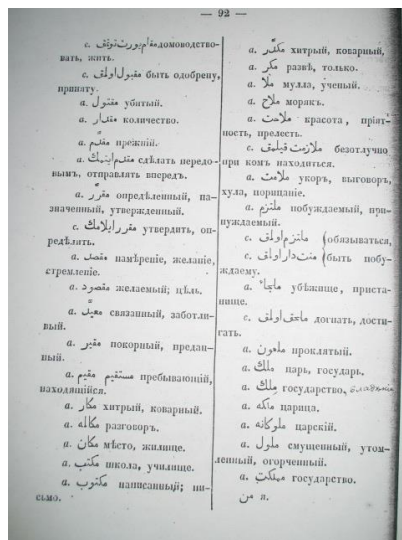 — 92 —
с. مقام يورت توتمق домоводство-
вать, жить.
с. مقبول اولمق быть одобрену,
приняту.
а. مقتول убитый.
а. مقدار количество.
а. مقدّم прежній.
а. مقدم ايتمك сдѣлать передо-
вымъ, отправлять впередъ.
а. مقرّر опредѣленный, на-
значенный, утвержденный.
с. مقرر ايلامك утвердить, оп-
редѣлять.
а. مقصد намѣреніе, желаніе,
стремленіе.
а. مقصود желаемый; цѣль.
а. مقيّد связанный, заботли-
вый.
а. مقير покорный, предан-
ный.
а. مقيم مستقيم пребывающій,
находящійся.
а. مكّار хитрый, коварный.
а. مكالمه разговоръ.
а. مكان мѣсто, жилище.
а. مكتب школа, училище.
а. مكتوب написанный; пи-
сьмо.
а. مكدّر хитрый, коварный,
а. مكر развѣ, только.
а. ملا мулла, ученый.
а. ملاح морякъ.
а. ملاحت красота, пріят-
ность, прелесть.
с. ملازمت قيلمق безотлучно
при комъ находиться.
а. ملامت укоръ, выговоръ,
хула, порицаніе.
а. ملتزم побуждаемый, при-
нуждаемый.
с. ملتزم اولمق (обязываться,
с. منتدار اولمق (быть побу-
ждаему.
а. ملجأ убѣжище, приста-
нище.
с. ملحق اولمق догнать, дости-
гать.
а. ملعون проклятый.
а. ملك царь, государь.
а. ملك государство,
а. ملكه царица.
а. ملوكانه царскій.
а. ملول смущенный, утом-
ленный, огорченный.
а. مملكت государство.
من п.